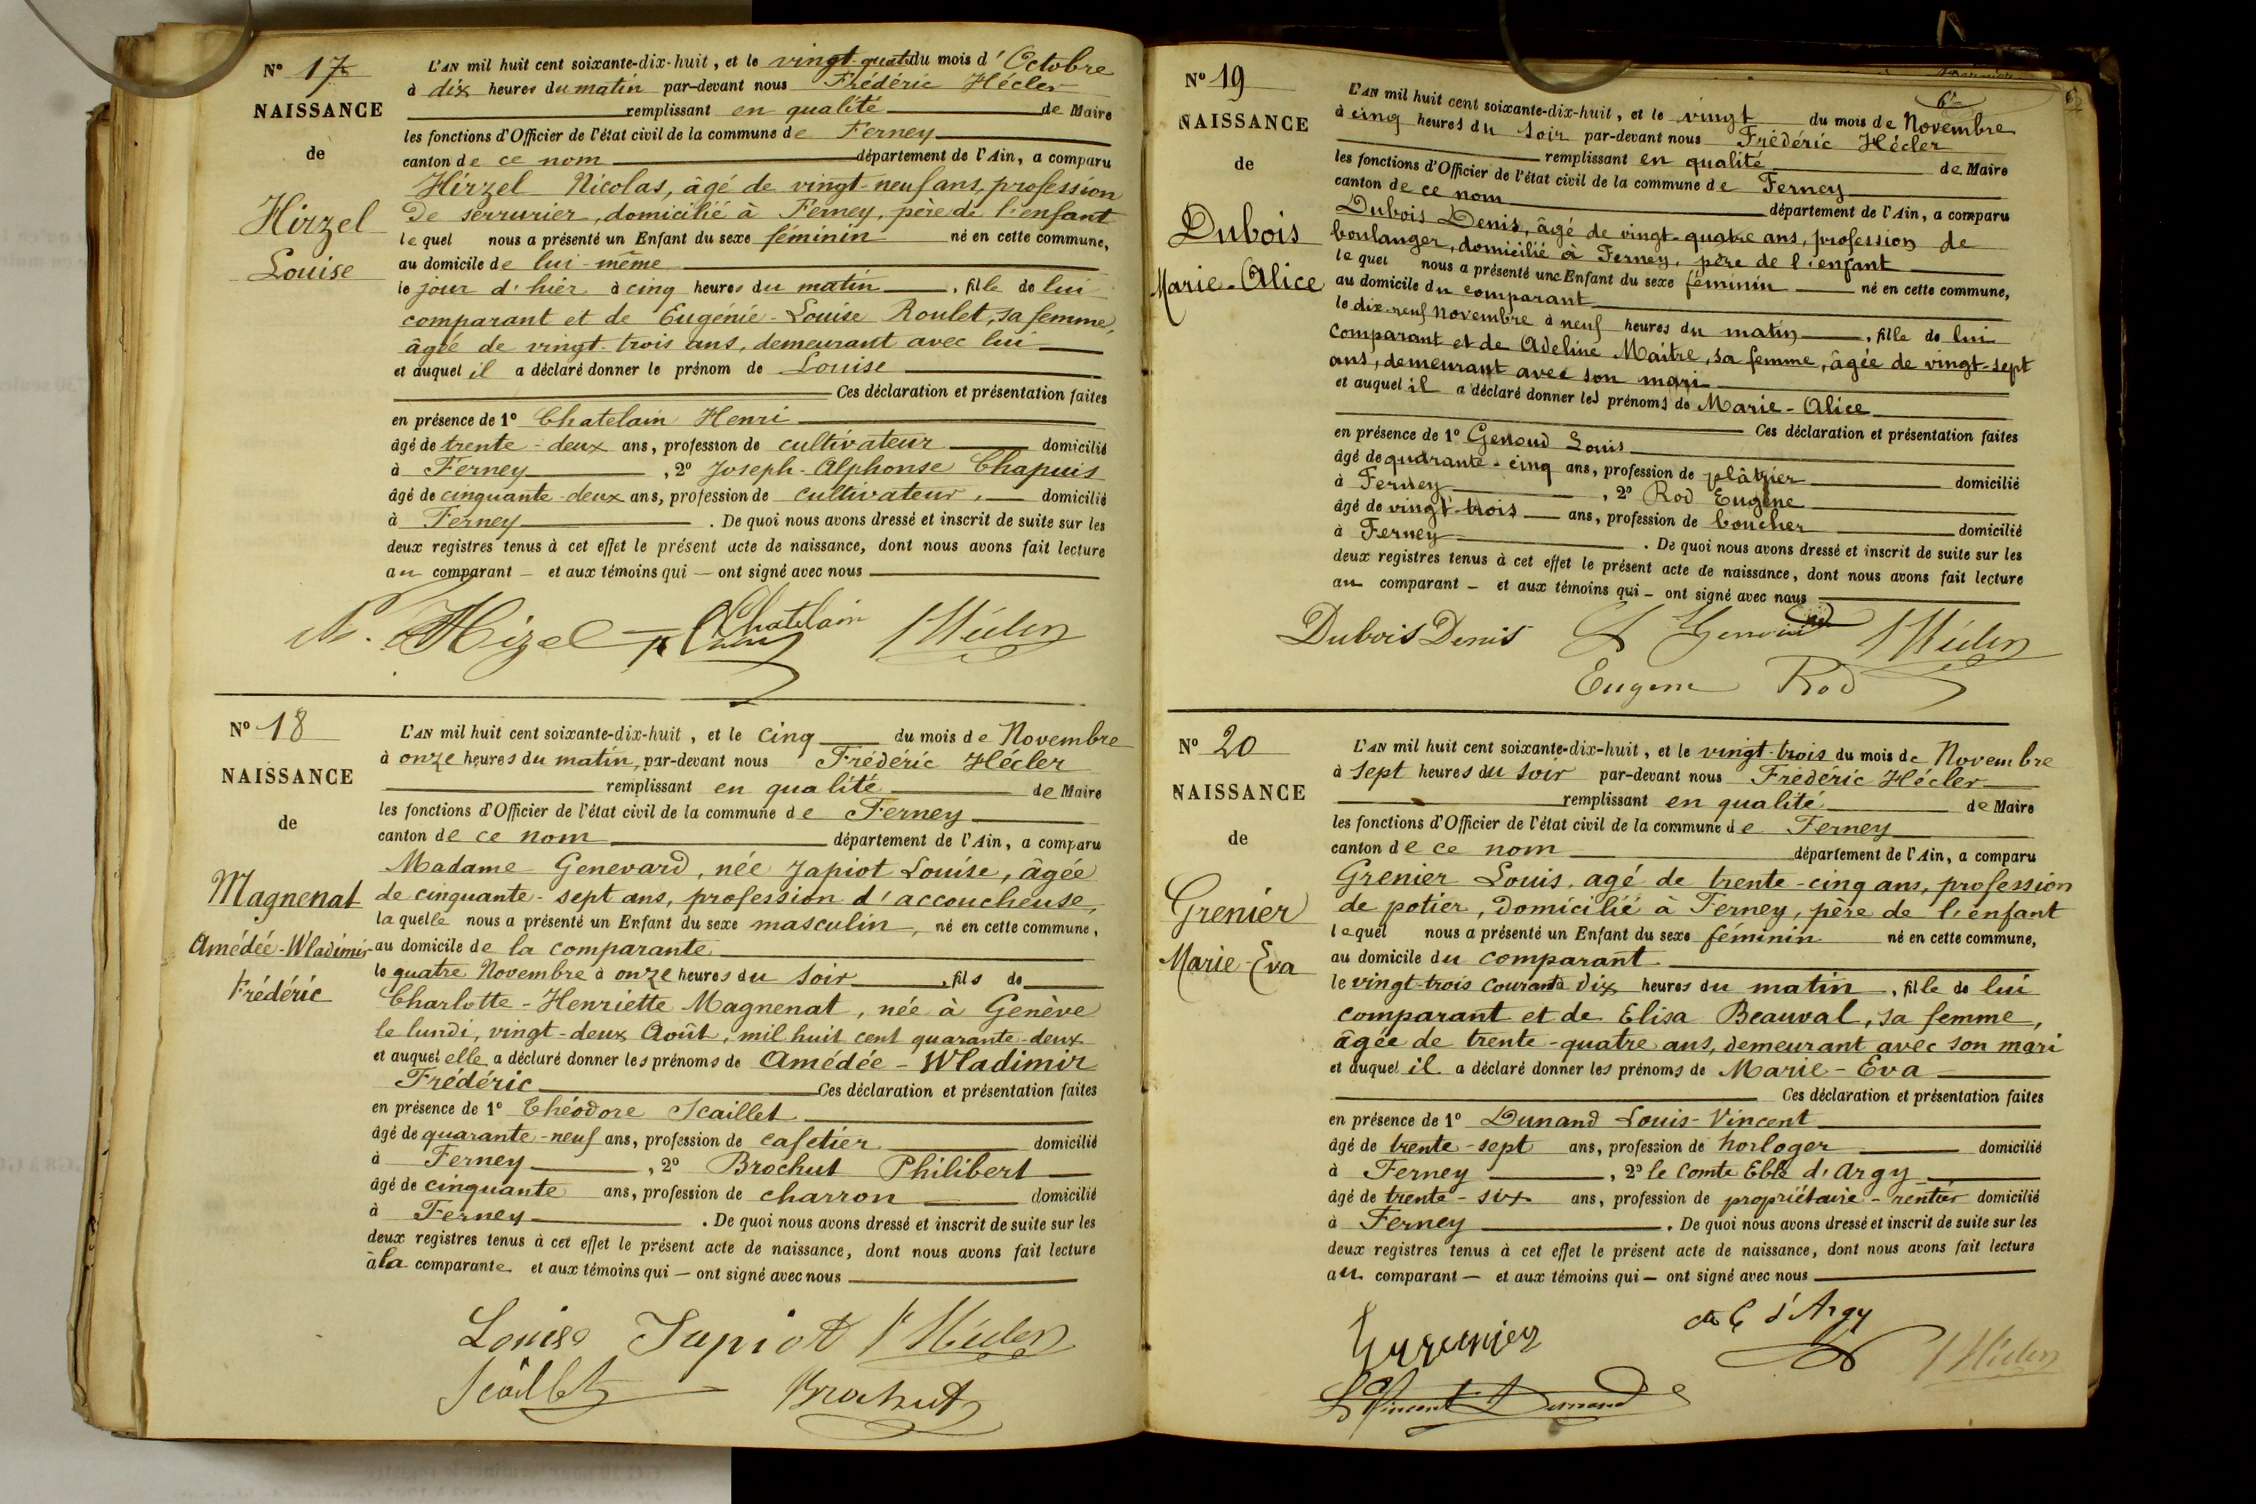 N° 17
NAISSANCE
de
Hirzel
Louise
L'AN mil huit cent soixante-dix-huit, et le vingt-quatre du mois d'Octobre
à dix heures du matin par-devant nous Frédéric Hécler
remplissant en qualité de Maire
les fonctions d'Officier de l'état civil de la commune de Ferney
canton de ce nom département de l'Ain, a comparu
Hirzel Nicolas, âgé de vingt-neuf ans, profession
de serrurier, domicilié à Ferney, père de l'enfant
lequel nous a présenté un Enfant du sexe féminin né en cette commune,
au domicile de lui-même
le jour d'hier à cinq heures du matin, fille de lui
comparant et de Eugénie-Louise Roulet, sa femme,
âgée de vingt-trois ans, demeurant avec lui
et auquel il a déclaré donner le prénom de Louise
Ces déclaration et présentation faites
en présence de 1° Chatelain Henri
âgé de trente-deux ans, profession de cultivateur domicilié
à Ferney, 2° Joseph-Alphonse Chapuis
âgé de cinquante-deux ans, profession de cultivateur, domicilié
à Ferney. De quoi nous avons dressé et inscrit de suite sur les
deux registres tenus à cet effet le présent acte de naissance, dont nous avons fait lecture
au comparant — et aux témoins qui — ont signé avec nous
N. Hizel Chatelain FHécler
N° 18
NAISSANCE
de
Magnenat
Amédée-Wladimir
Frédéric
L'AN mil huit cent soixante-dix-huit, et le cinq du mois de Novembre
à onze heures du matin, par-devant nous Frédéric Hécler
remplissant en qualité de Maire
les fonctions d'Officier de l'état civil de la commune de Ferney
canton de ce nom département de l'Ain, a comparu
Madame Genevard, née Japiot Louise, âgée
de cinquante-sept ans, profession d'accoucheuse,
laquelle nous a présenté un Enfant du sexe masculin, né en cette commune,
au domicile de la comparante
le quatre Novembre à onze heures du soir, fils de
Charlotte-Henriette Magnenat, née à Genève
le lundi, vingt-deux Août, mil huit cent quarante-deux
et auquel elle a déclaré donner les prénoms de Amédée-Wladimir
Frédéric Ces déclaration et présentation faites
en présence de 1° Théodore Scaillet
âgé de quarante-neuf ans, profession de cafetier domicilié
à Ferney, 2° Brochut Philibert
âgé de cinquante ans, profession de charron domicilié
à Ferney. De quoi nous avons dressé et inscrit de suite sur les
deux registres tenus à cet effet le présent acte de naissance, dont nous avons fait lecture
à la comparante et aux témoins qui — ont signé avec nous
Louise Japiot FHécler
Scaillet Brochut
N° 19
NAISSANCE
de
Dubois
Marie-Alice
L'AN mil huit cent soixante-dix-huit, et le vingt du mois de Novembre
à cinq heures du soir par-devant nous Frédéric Hécler
remplissant en qualité de Maire
les fonctions d'Officier de l'état civil de la commune de Ferney
canton de ce nom département de l'Ain, a comparu
Dubois Denis, âgé de vingt-quatre ans, profession de
boulanger, domicilié à Ferney, père de l'enfant
lequel nous a présenté une Enfant du sexe féminin né en cette commune,
au domicile du comparant
le dix-neuf Novembre à neuf heures du matin, fille de lui
comparant et de Adeline Maitre, sa femme, âgée de vingt-sept
ans, demeurant avec son mari
et auquel il a déclaré donner les prénoms de Marie-Alice
Ces déclaration et présentation faites
en présence de 1° Genoud Louis
âgé de quarante-cinq ans, profession de plâtrier domicilié
à Ferney, 2° Rod Eugène
âgé de vingt-trois ans, profession de boucher domicilié
à Ferney. De quoi nous avons dressé et inscrit de suite sur les
deux registres tenus à cet effet le présent acte de naissance, dont nous avons fait lecture
au comparant — et aux témoins qui — ont signé avec nous
Dubois Denis Genoud FHécler
Eugene Rod
N° 20
NAISSANCE
de
Grenier
Marie-Eva
L'AN mil huit cent soixante-dix-huit, et le vingt-trois du mois de Novembre
à sept heures du soir par-devant nous Frédéric Hécler
remplissant en qualité de Maire
les fonctions d'Officier de l'état civil de la commune de Ferney
canton de ce nom département de l'Ain, a comparu
Grenier Louis, agé de trente-cinq ans, profession
de potier, domicilié à Ferney, père de l'enfant
lequel nous a présenté un Enfant du sexe féminin né en cette commune,
au domicile du comparant
le vingt-trois courant à dix heures du matin, fille de lui
comparant et de Elisa Beauval, sa femme,
âgée de trente-quatre ans, demeurant avec son mari
et auquel il a déclaré donner les prénoms de Marie-Eva
Ces déclaration et présentation faites
en présence de 1° Dunand Louis-Vincent
âgé de trente-sept ans, profession de horloger domicilié
à Ferney, 2° le Comte Eble d'Argy
âgé de trente-six ans, profession de propriétaire-rentier domicilié
à Ferney. De quoi nous avons dressé et inscrit de suite sur les
deux registres tenus à cet effet le présent acte de naissance, dont nous avons fait lecture
au comparant — et aux témoins qui — ont signé avec nous
d'Argy
Grenier FHécler
L Vincent Dunand